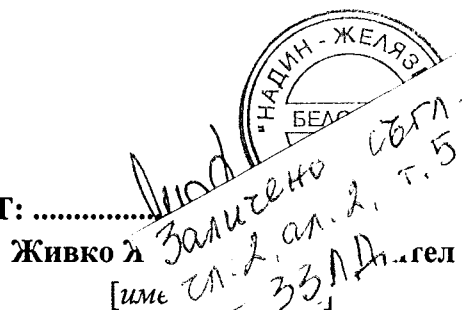 "НАДИН - ЖЕЛЯЗ
БЕЛО
Заличено съгл.
чл. 2, ал. 2, т. 5
ЗЗЛД
Т: ..............
Живко